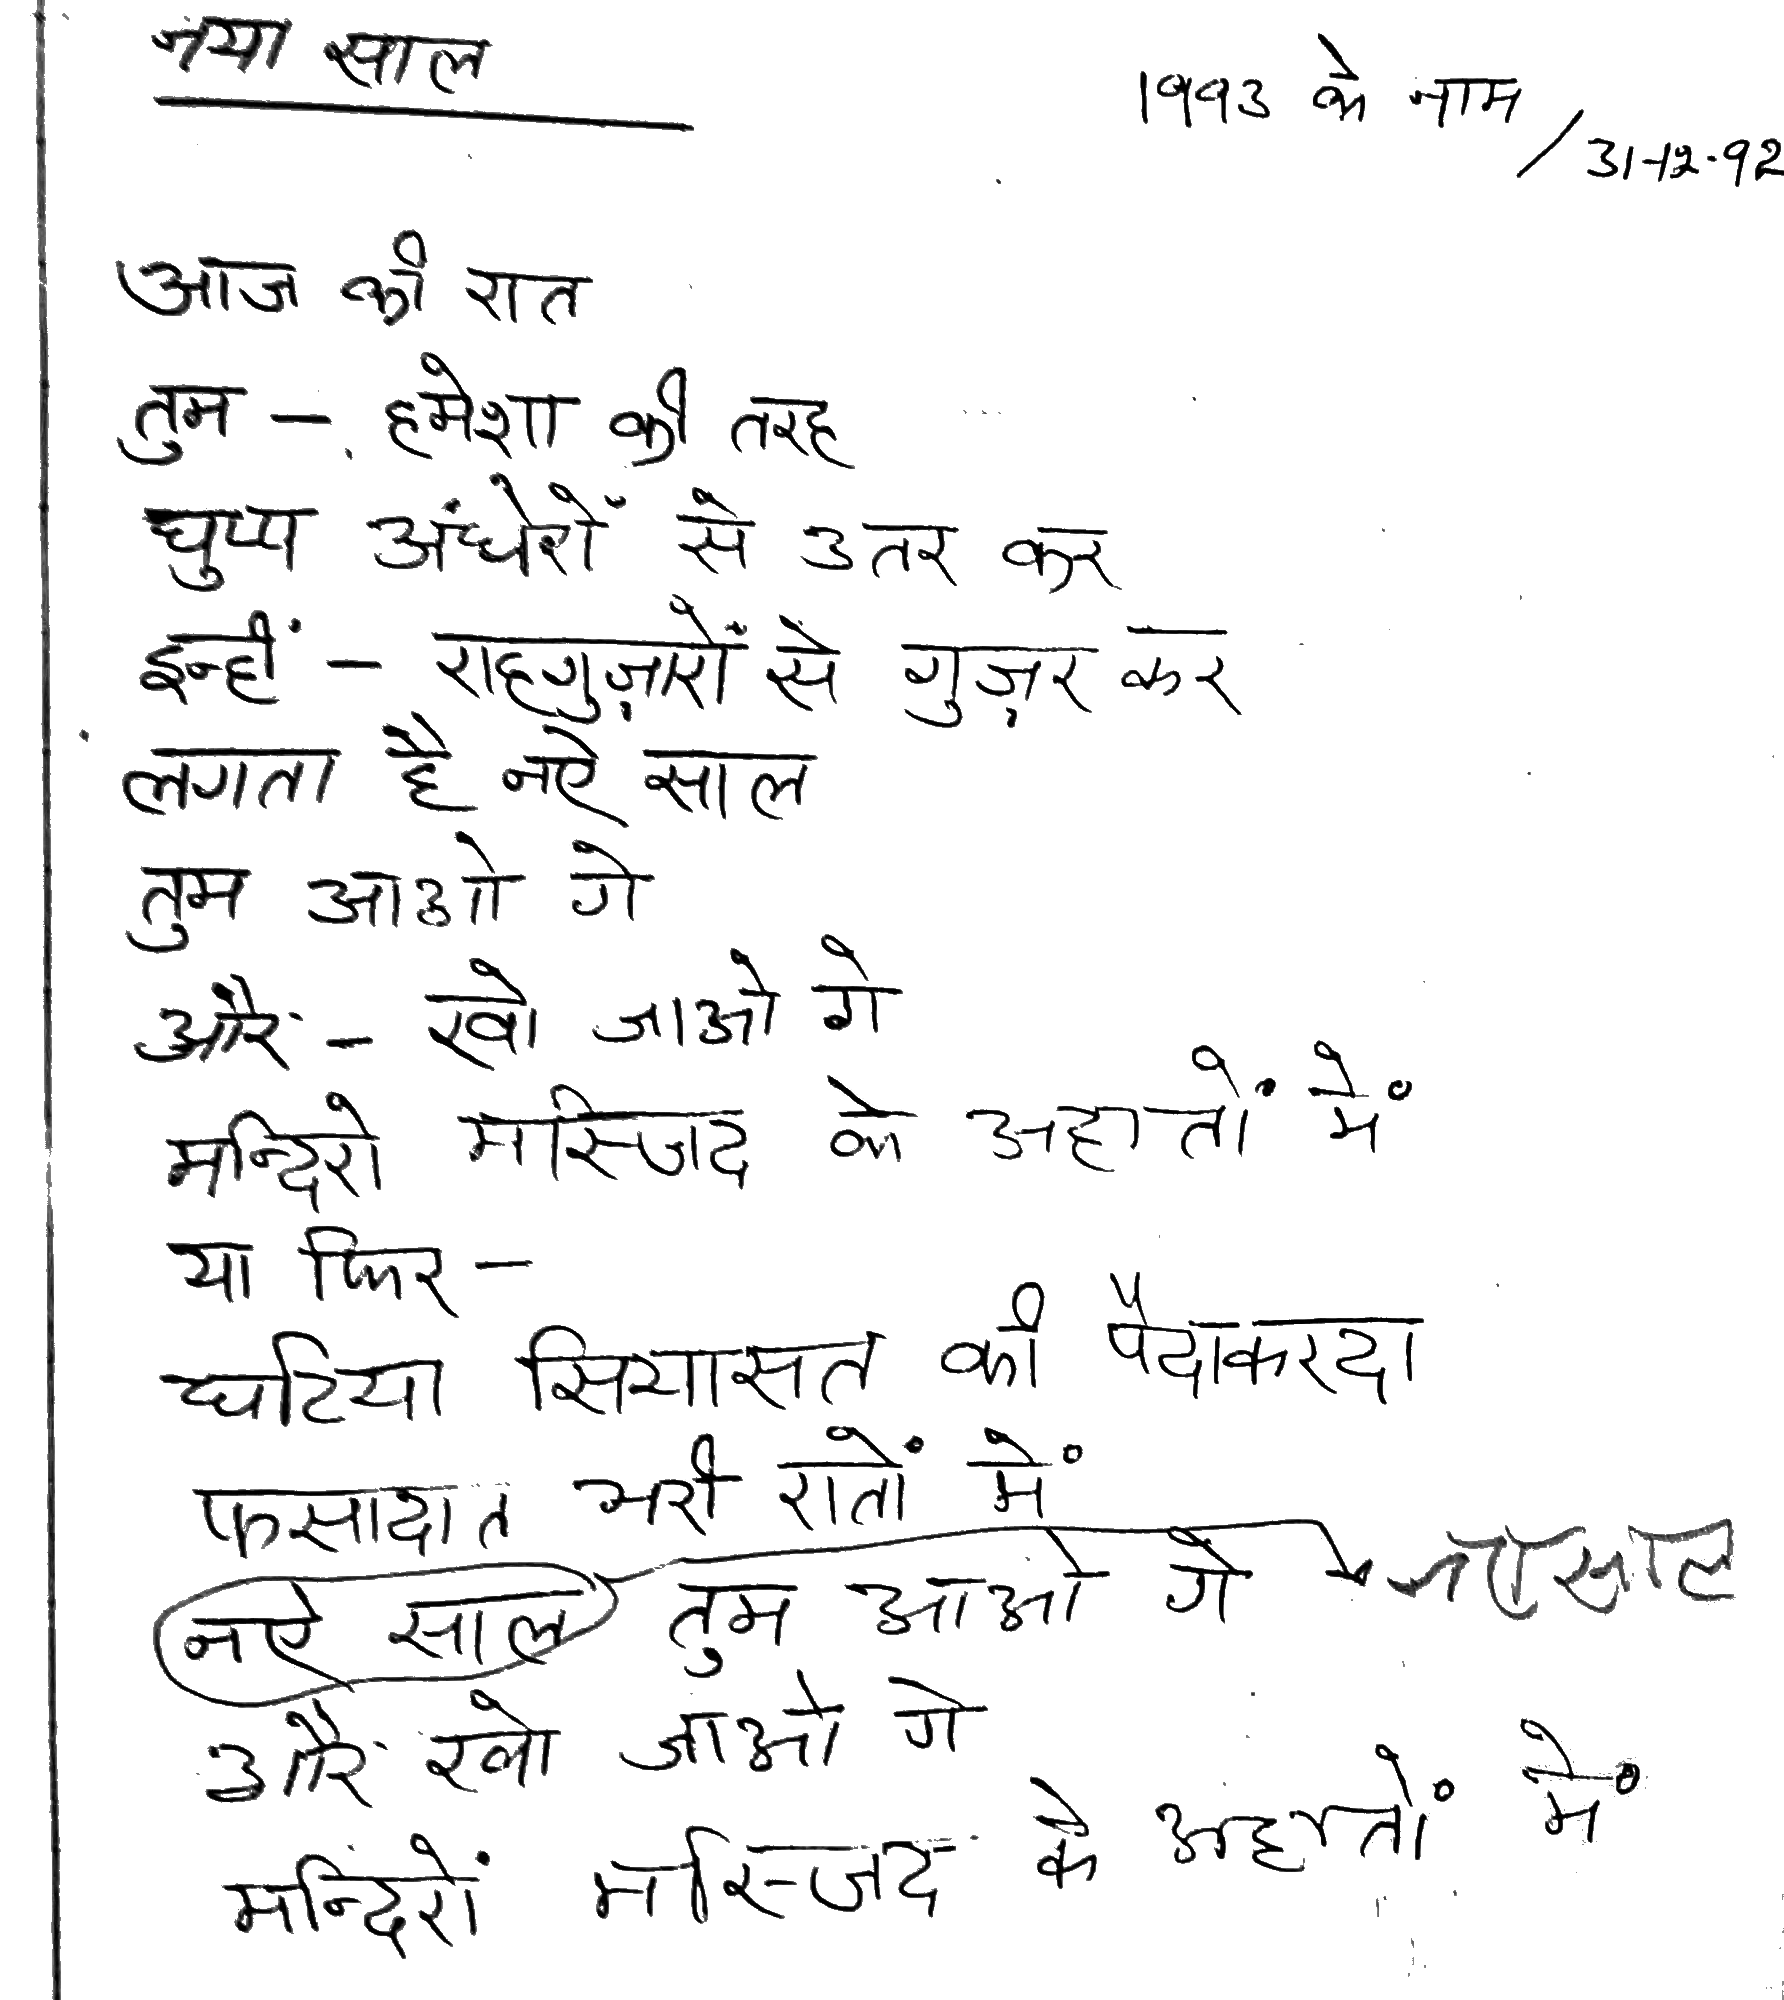 नया साल
1993 के नाम / 31-12-92
आज की रात
तुम – हमेशा की तरह
घुप्प अंधेरों से उतर कर
इन्हीं – राहगुज़ारों से गुज़र कर
लगता है नऐ साल
तुम आओ गे
और – खो जाओ गे
मन्दिरो मस्जिद के अहातों में
या फिर –
घटिया सियासत की पैदाकरदा
फसादात भरी रातों में
नऐ साल तुम आओ गे
और खो जाओ गे
मन्दिरों मस्जिद के अहातों में